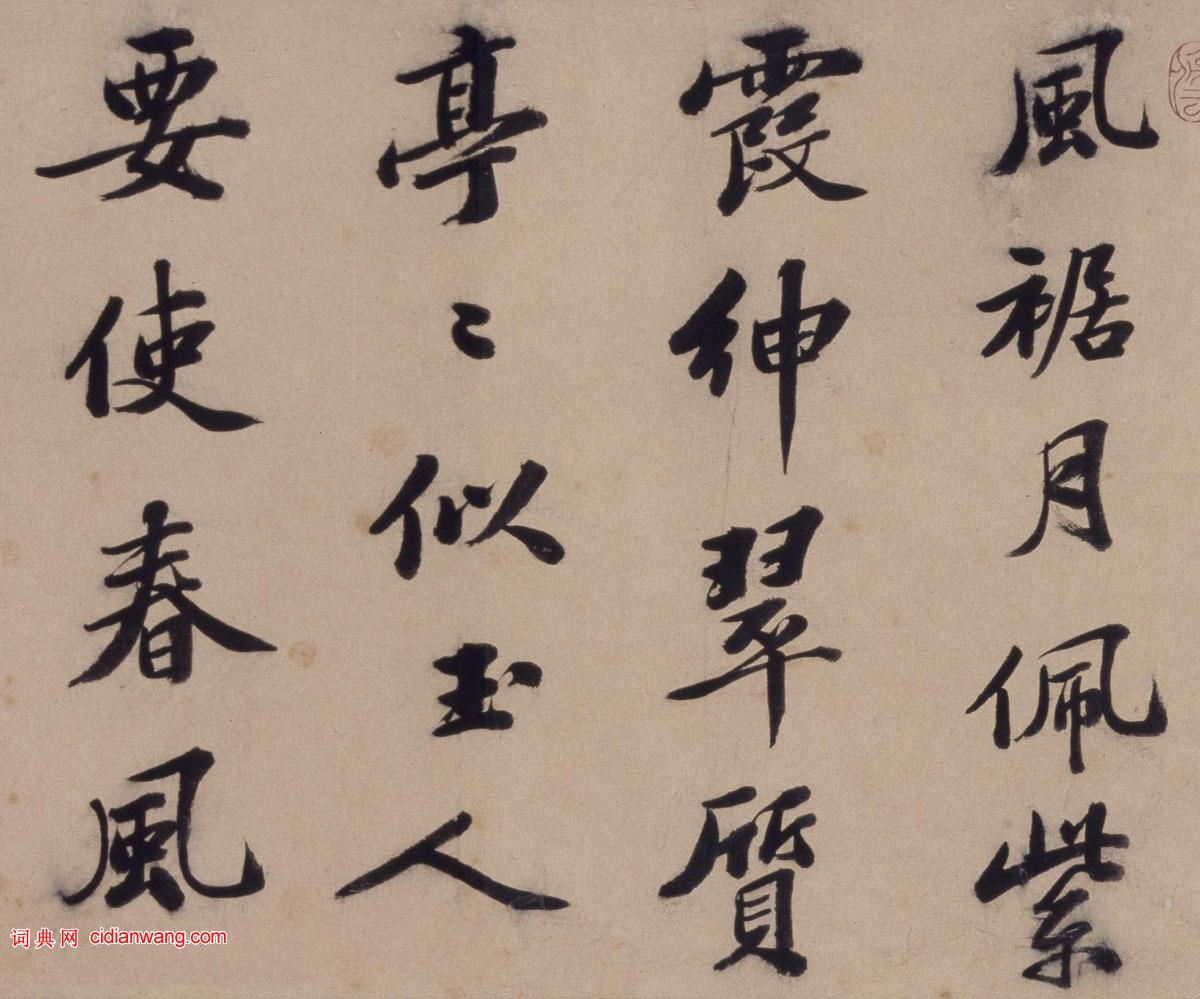 風裾月佩紫
霞紳翠質
亭〻似玉人
要使春風
词典网 cidianwang.com